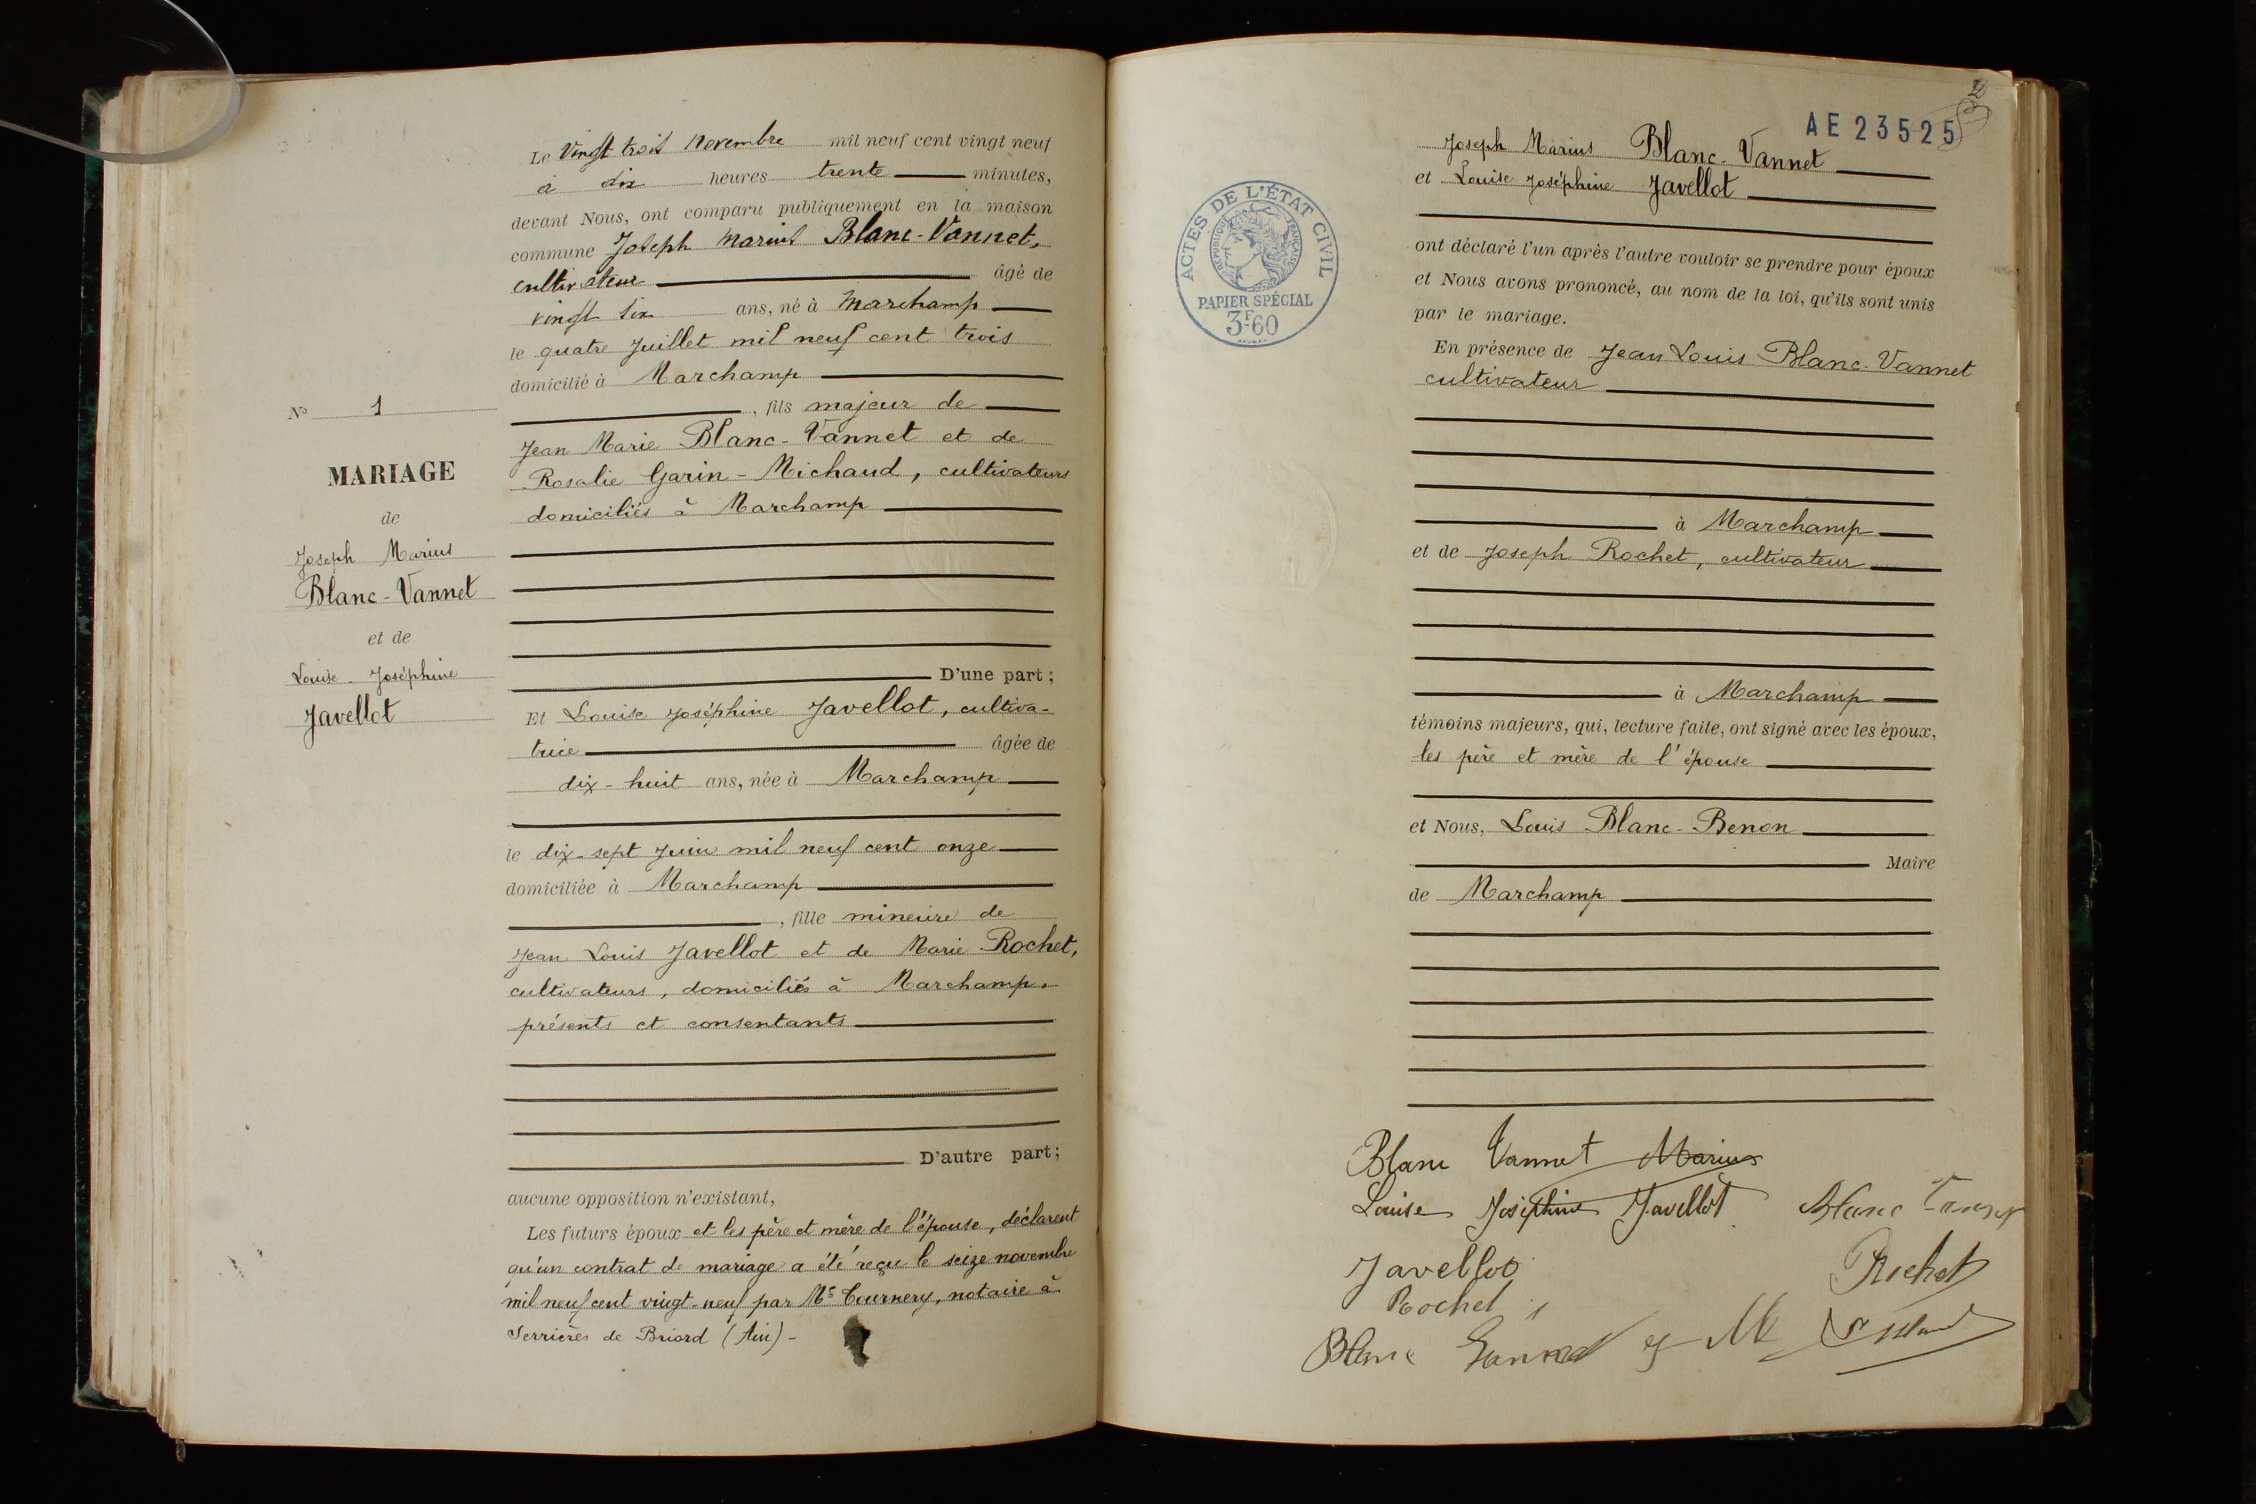 Le Vingt trois Novembre mil neuf cent vingt neuf
à dix heures trente minutes,
devant Nous, ont comparu publiquement en la maison
commune Joseph Marius Blanc-Vannet,
cultivateur âgé de
vingt six ans, né à Marchamp
le quatre Juillet mil neuf cent trois
domicilié à Marchamp
, fils majeur de
Jean Marie Blanc-Vannet et de
Rosalie Garin-Michaud, cultivateurs
domiciliés à Marchamp
D'une part;
Et Louise Joséphine Javellot, cultiva-
trice âgée de
dix-huit ans, née à Marchamp
le dix-sept Juin mil neuf cent onze
domiciliée à Marchamp
, fille mineure de
Jean Louis Javellot et de Marie Rochet,
cultivateurs, domiciliés à Marchamp.
présents et consentants
D'autre part;
aucune opposition n'existant,
Les futurs époux et les père et mère de l'épouse, déclarent
qu'un contrat de mariage a été reçu le seize novembre
mil neuf cent vingt-neuf par Me Tournery, notaire à
Serrières de Briord (Ain)-
No 1
MARIAGE
de
Joseph Marius
Blanc-Vannet
et de
Louise-Joséphine
Javellot
AE 23525
ACTES DE L'ÉTAT CIVIL
RÉPUBLIQUE FRANÇAISE
PAPIER SPÉCIAL
3F60
Joseph Marius Blanc-Vannet
et Louise Joséphine Javellot
ont déclaré l'un après l'autre vouloir se prendre pour époux
et Nous avons prononcé, au nom de la loi, qu'ils sont unis
par le mariage.
En présence de Jean Louis Blanc-Vannet
cultivateur
à Marchamp
et de Joseph Rochet, cultivateur
à Marchamp
témoins majeurs, qui, lecture faite, ont signé avec les époux,
les père et mère de l'épouse
et Nous, Louis Blanc-Benon
Maire
de Marchamp
Blanc Vannet Marius
Louise Joséphine Javellot Blanc Vannet
Javellot
Rochet
Rochet
Blanc